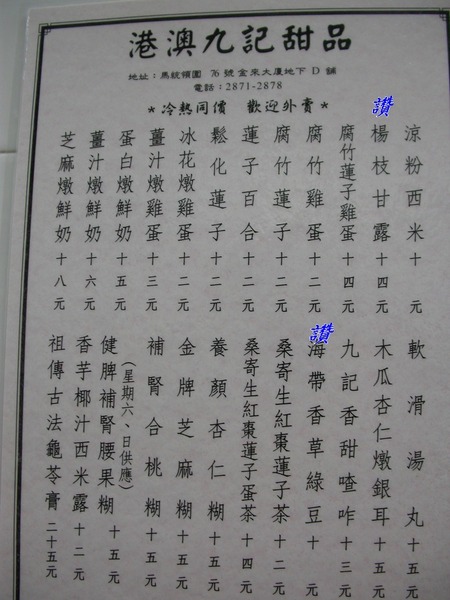 港澳九記甜品
地址：馬統領圍 76 號金來大廈地下 D 舖
電話：2871-2878
＊冷熱同價 歡迎外賣＊
涼粉西米十元
讚
楊枝甘露十四元
腐竹蓮子雞蛋十四元
腐竹雞蛋十二元
腐竹蓮子十二元
蓮子百合十二元
鬆化蓮子十二元
冰花燉雞蛋十二元
薑汁燉雞蛋十三元
蛋白燉鮮奶十五元
薑汁燉鮮奶十六元
芝麻燉鮮奶十八元
軟滑湯丸十五元
木瓜杏仁燉銀耳十五元
九記香甜喳咋十三元
讚
海帶香草綠豆十元
桑寄生紅棗蓮子茶十二元
桑寄生紅棗蓮子蛋茶十四元
養顏杏仁糊十五元
金牌芝麻糊十五元
補腎合桃糊十五元
(星期六、日供應)
健脾補腎腰果糊十五元
香芋椰汁西米露十二元
祖傳古法龜苓膏二十五元